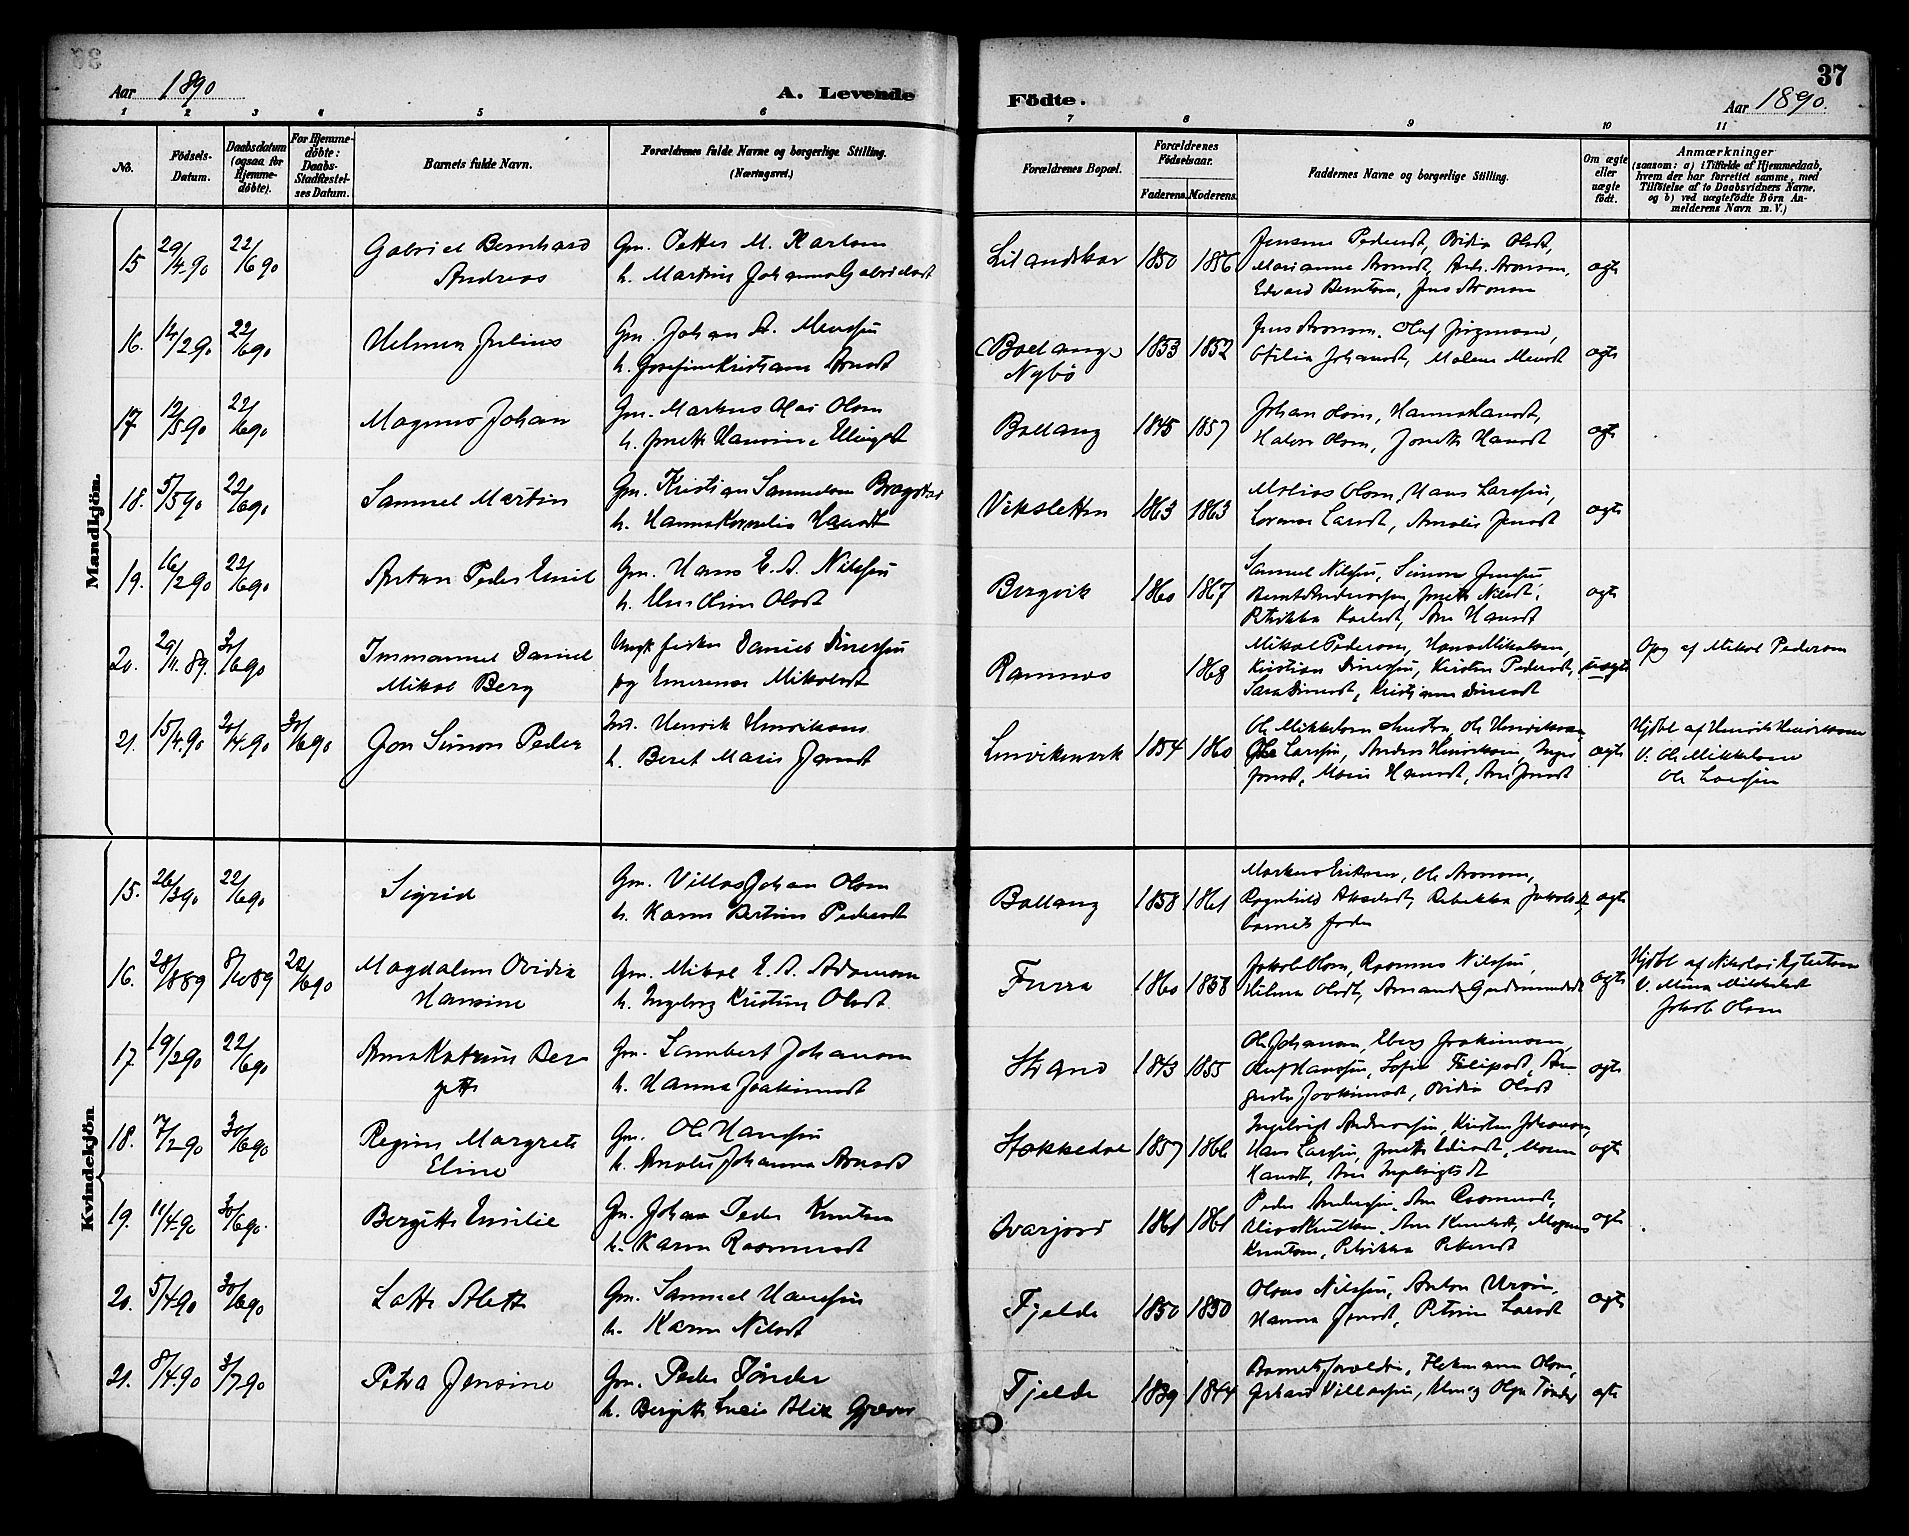 Aar 1890
A. Levende
Födte.
37
Aar 1890.
1 2 3 4 5 6 7 8 9 10 11
No.
Födsels-
Datum.
Daabsdatum
(ogsaa for
Hjemme-
döbte).
For Hjemme-
döbte:
Daabs-
Stadfæstel-
ses Datum.
Barnets fulde Navn.
Forældrenes fulde Navne og borgerlige Stilling.
(Næringsvei.)
Forældrenes Bopæl.
Forældrenes
Födselsaar.
Faderens.
Moderens.
Faddernes Navne og borgerlige Stilling.
Om ægte
eller
uægte
födt.
Anmærkninger
(saasom: a) i Tilfælde af Hjemmedaab,
hvem der har forrettet samme, med
Tilföielse af to Daabsvidners Navne,
og b) ved uægtefödte Börn An-
melderens Navn m. V.)
Mandkjön.
15 29/4 90 22/6 90 Gabriel Bernhard
Andreas
Gm. Petter M. Karlsen
h. Martine Johanna Gabrielsdt
1850 1856
Marianne Aronsdt,
Edvard Berntsen, Jens Aronsen
ægte
16. 14/2 90 22/6 90 Hilmen Julius
Gm. Johan A. Menssen
h. Josefine Kristiane Aronsdt
Ballang,
Nybö
1853 1852
Jens Aronsen. Oluf Jörgensen,
Otilia Johansdt, Malene Mensdt
ægte
17 12/5 90 22/6 90 Magnus Johan
Gm. Markus Olai Olsen
h. Jonette Hansine Ellingsdt
Ballang 1845 1857
Johan Olsen, Hanna Hansdt,
Olsen, Jonette Hansdt
ægte
18. 5/5 90 22/6 90 Samuel Martin
Gm. Kristian Samuelsen
h. Hanna Kornelia Hansdt
Viksletten 1863 1863
Matias Olsen, Hans Larssen,
Lorense Larsdt, Amalie Jensdt
ægte
19. 16/2 90 22/6 90 Anton Peder Emil
Gm. Hans E. A. Nilssen
h. Olsdt
Bergvik 1860 1867
Samuel Nilssen, Simon Jenssen,
Bernt Andreassen, Jonette Nilsdt,
Rebekka Karlsdt, Ane Hansdt
ægte
20. 29/11. 89. 30/6 90 Immanuel Daniel
Mikal Berg
Ungk. fisker Daniel Dinessen
pg Emerense Mikalsdt
Ramnes 1868
Mikal Pedersen, Hans Mikalsen,
Kristian Dinessen, Kirsten Pedersdt,
Sara Dinesdt, Kristiane Dinesdt
uægte
Opg af Mikal Pedersen
21. 15/4 90 20/4 90 30/6 90 Jon Simon Peder
Ind. Henrik Henriksen
h. Beret Marie Jonsdt
Lenviksmark 1854 1860
Ole Mikkelsen Ole Henriksen,
Ole Larssen, Anders Henriksen, Inger
Jonsdt, Marie Hansdt, Ane Jonsdt
ægte
Hjdbt af Henrik Henriksen
V: Ole Mikkelsen
Ole Larssen
Kvindekjön.
15. 26/3 90 22/6 90 Sigrid
Gm. Villas Johan Olsen
h. Karen Bertine Pedersdt
Ballang 1858 1861
Markus Eriksen, Ole Aronsen,
Ragnhild Akselsdt, Rebekka Jakobsdt,
barnets fader
ægte
16. 28/8 89 8/10 89 22/6 90 Magdalene Ovidia
Hansine
Gm. Mikal E. A. Adamsen
h. Ingeborg Kristine Olsdt
Furra 1860 1858
Jakob Olsen, Rasmus Nilssen,
Hilma Olsdt, Amanda Gudmundsdt
ægte
Hjdbt af Nikolai Eilertsen
V. Mina Mikkelsdt
Jakob Olsen
17. 19/2 90 22/6 90 Anna Katrine Ber
gette
Gm. Lambert Johansen
h. Hanna Joakimsdt
Strand 1843 1855
Ole Johansen, Eberg Joakimsen,
Oluf Hanssen, Sofie Filipsdt, Au-
gusta Joakimsdt, Ovidia Olsdt
ægte
18. 7/2 90 30/6 90 Regine Margrete
Eline
Gm. Ole Hanssen
h. Amalie Johanna Aronsdt
Stokkedal 1857 1866
Ingebrigt Andreassen, Kristen Johansen,
Hans Larssen, Jonette Maren
Hansdt, Ane Ingebrigtsdt
ægte
19. 11/4 90 30/6 90. Bergitte Emilie
Gm. Johan Peder Knutsen
h. Karen Rasmusdt
Evarjord 1861 1861
Peder Anderssen, Ane Rasmusdt,
Knutsen, Ane Knutsdt, Magnus
Knutsen, Petrikka Petersdt
ægte
20. 5/4 90 30/6 90 Lotte Alette
Gm. Samuel Hanssen
h. Karen Nilsdt
Fjelde 1850 1850
Olaus Nilssen, Anton Ursin,
Hanna Jensdt, Petrine Larsdt
ægte
21. 8/4 90 3/7 90 Petra Jensine
Gm. Peder Tönder
h. Bergitte Lucie Alix Gjæver
Fjelde 1839 1844
Barnets forældre, Hekmann Olsen,
Gerhard Villassen, Olga Tönder
ægte